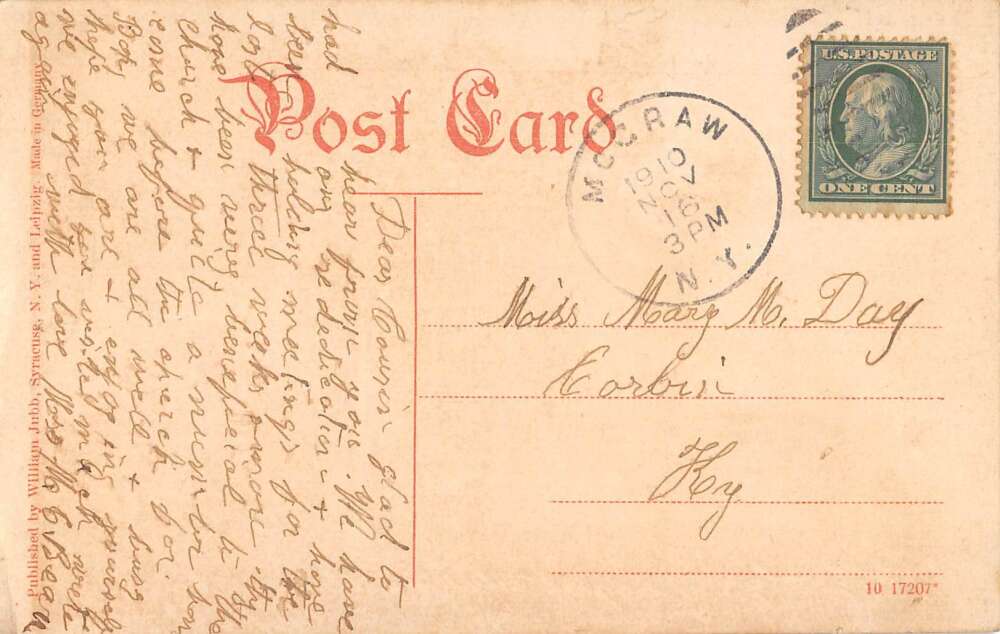 Post Card
U.S. POSTAGE
ONE CENT
MCGRAW
N.Y.
NOV
16
3 PM
1910
Miss Mary M. Day
Corbin
Ky
Dear Cousin glad to
hear from you. We have
had our rededication & have
been holding meetings for the
last three weeks or more. they
have been very beneficial to the
church & quite a number
come before the church for.
Bap, we are all well & busy
hope you are & enjoying yourself
we enjoyed visit much write
again with love Bean
Published by William Jubb, Syracuse, N. Y. and Leipzig. Made in Germany
10 17207*